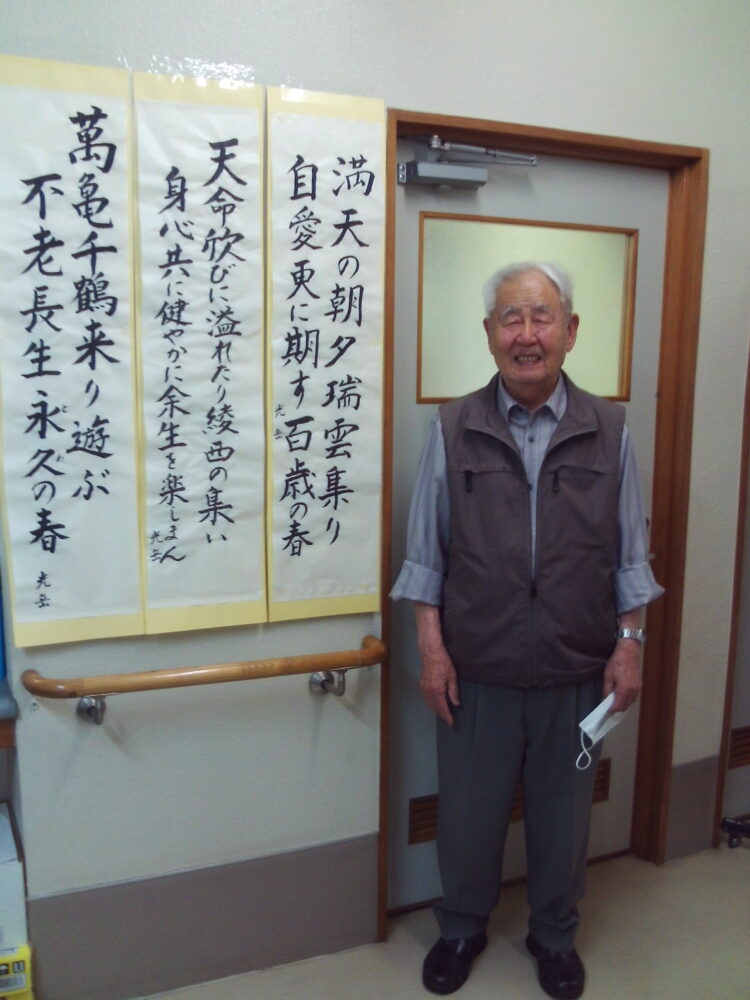 満天の朝夕瑞雲集り
自愛更に期す百歳の春
光岳
天命欣びに溢れたり綾西の集い
身心共に健やかに余生を楽しまん
光岳
萬亀千鶴来り遊ぶ
不老長生永久の春
とわ
光岳